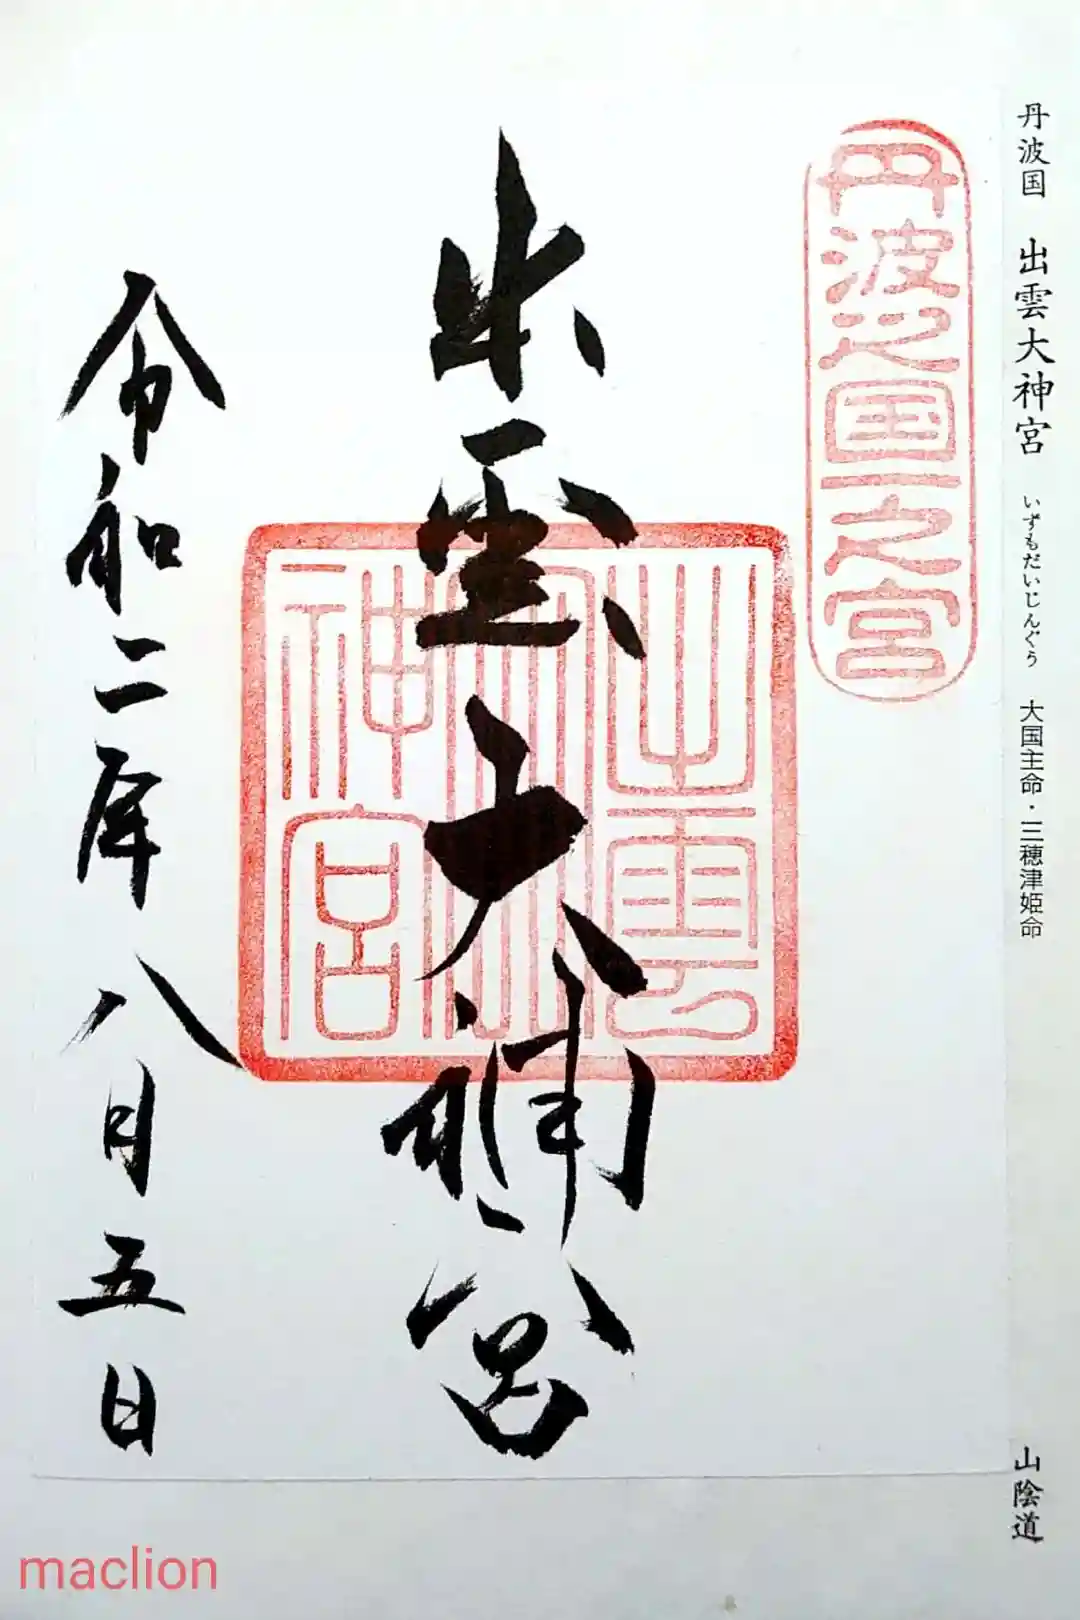 丹波国 出雲大神宮 いずもだいじんぐう 大国主命・三穂津姫命 山陰道
丹波之国一之宮
出雲大神宮
出雲大神宮
令和二年八月五日
maclion